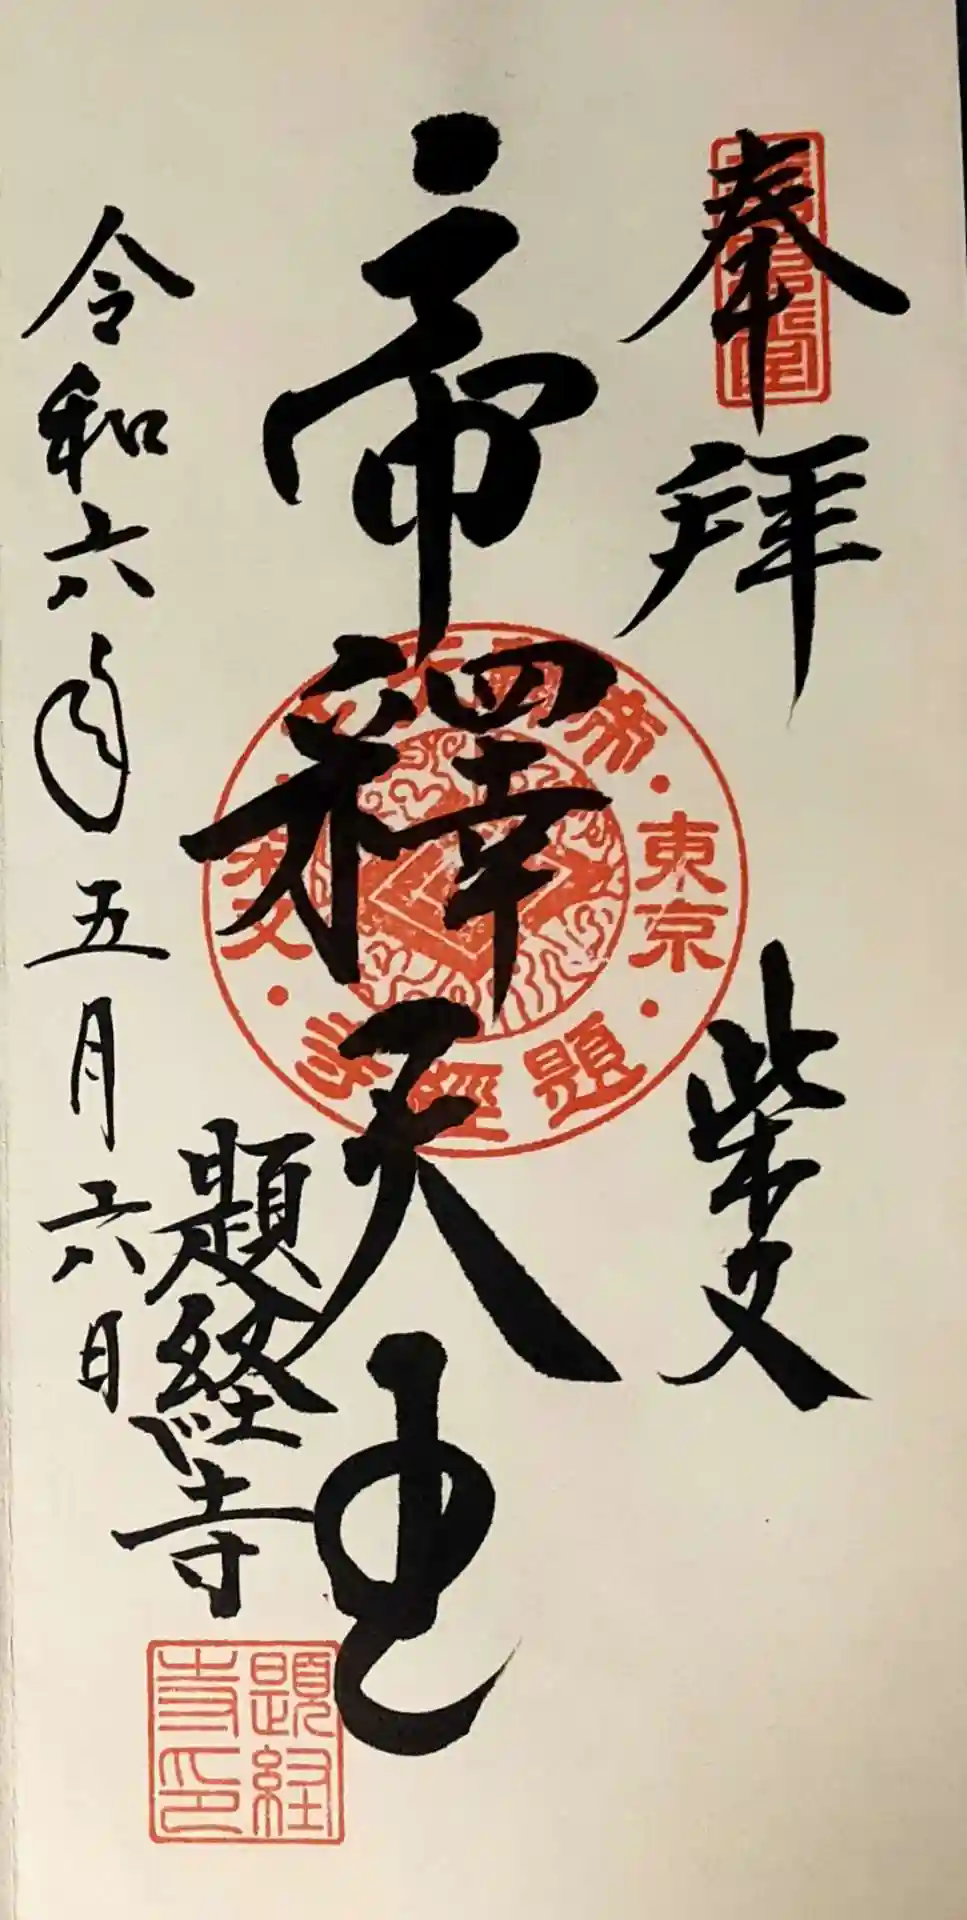 奉拝
柴又
帝釋天王
題経寺
令和六年五月六日
東京
題經寺
柴又
題経寺印